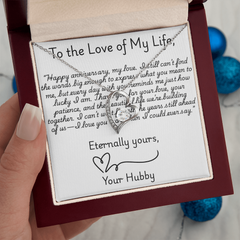 To the Love of My Life,
"Happy anniversary, my love. I still can't find
the words big enough to express what you mean to
me, but every day with you reminds me just how
lucky I am. Thank for your love, your
patience, and the beautiful life we're building
together. I can't the years still ahead
of us—I love you I could ever say."
Eternally yours,
Your Hubby